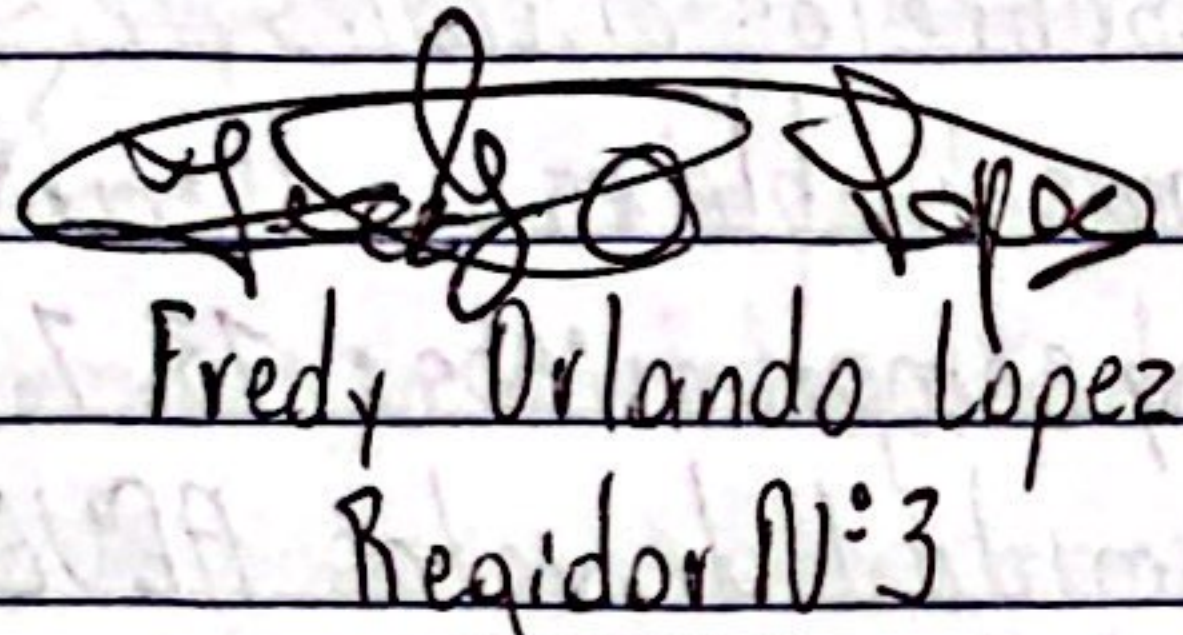 Fredy O Lopez
Fredy Orlando Lopez
Regidor N° 3